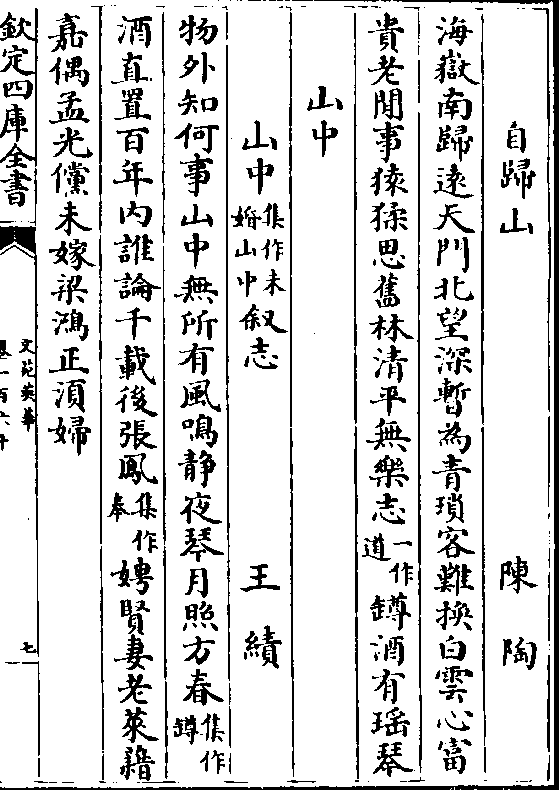 自歸山　陳陶
海嶽南歸遠天門北望深暫為青瑣客難換白雲心富
貴老閒事猿猱思舊林清平無樂志一作道罇酒有瑶琴
山中
山中集作未婚山中叙志　王績
物外知何事山中無所有風鳴静夜琴月照方春集作罇
酒直置百年内誰論千載後張鳳集作奉娉賢妻老萊藉
嘉偶孟光儻未嫁梁鴻正湏婦
欽定四庫全書
文苑英華
卷一百六十
七